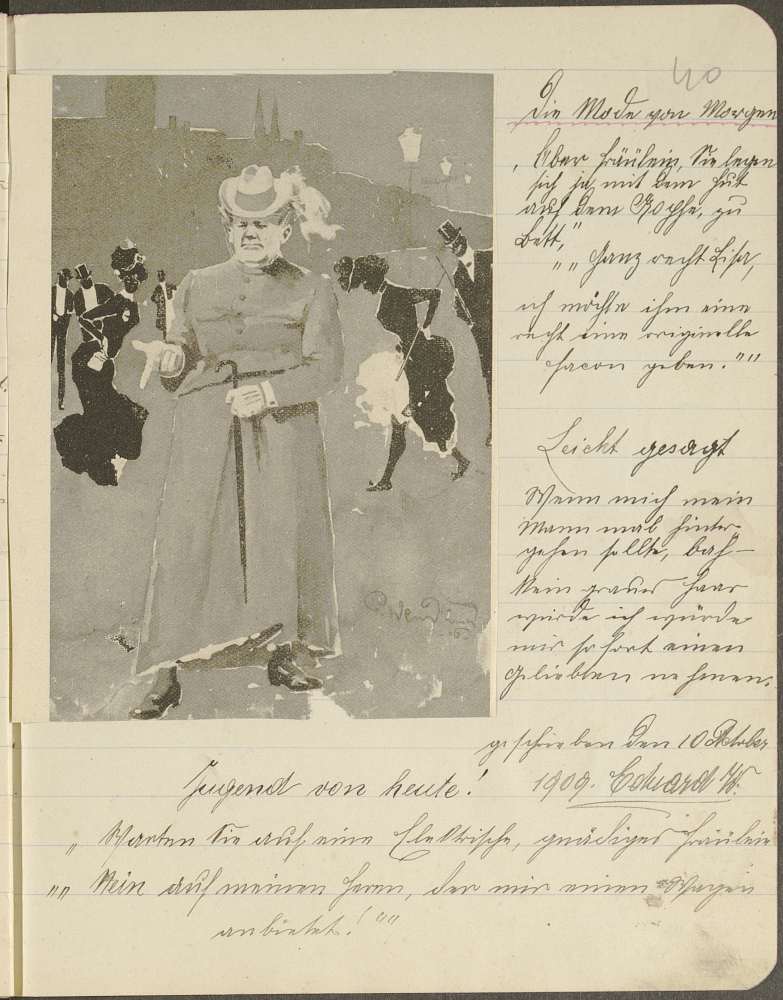 40
Die Mode von Morgen
„Aber Fräulein, Sie legen
sich ja mit dem Hut
auf dem Kopfe, zu
Bett,"
„„Ganz recht Lisa,
ich möchte ihm eine
recht eine originelle
facon geben.""
Leicht gesagt
Wenn mich mein
Mann mal hinter-
gehen sollte, bah –
kein graues Haar
würde ich würde
mir sofort einen
Geliebten nehmen.
geschrieben den 10 Oktober
1909. Eduard W.
Jugend von heute!
„Warten Sie auf eine Elektrische, gnädiges Fräulein
„„Nein auf meinen Herrn, der mir einen Wagen
anbietet!""